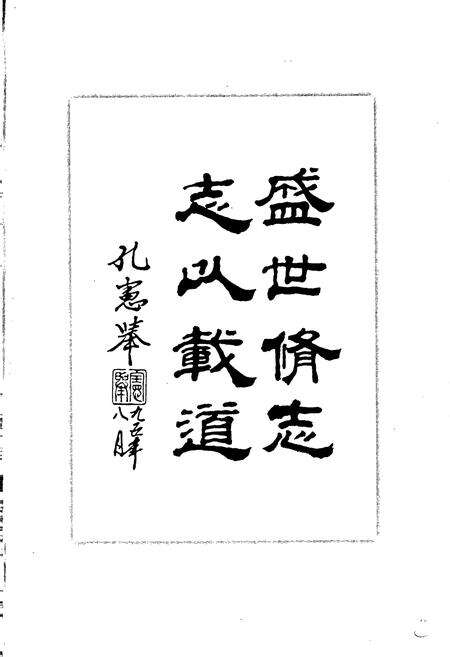 盛世脩志
志以載道
孔憲舉
九五年
八月